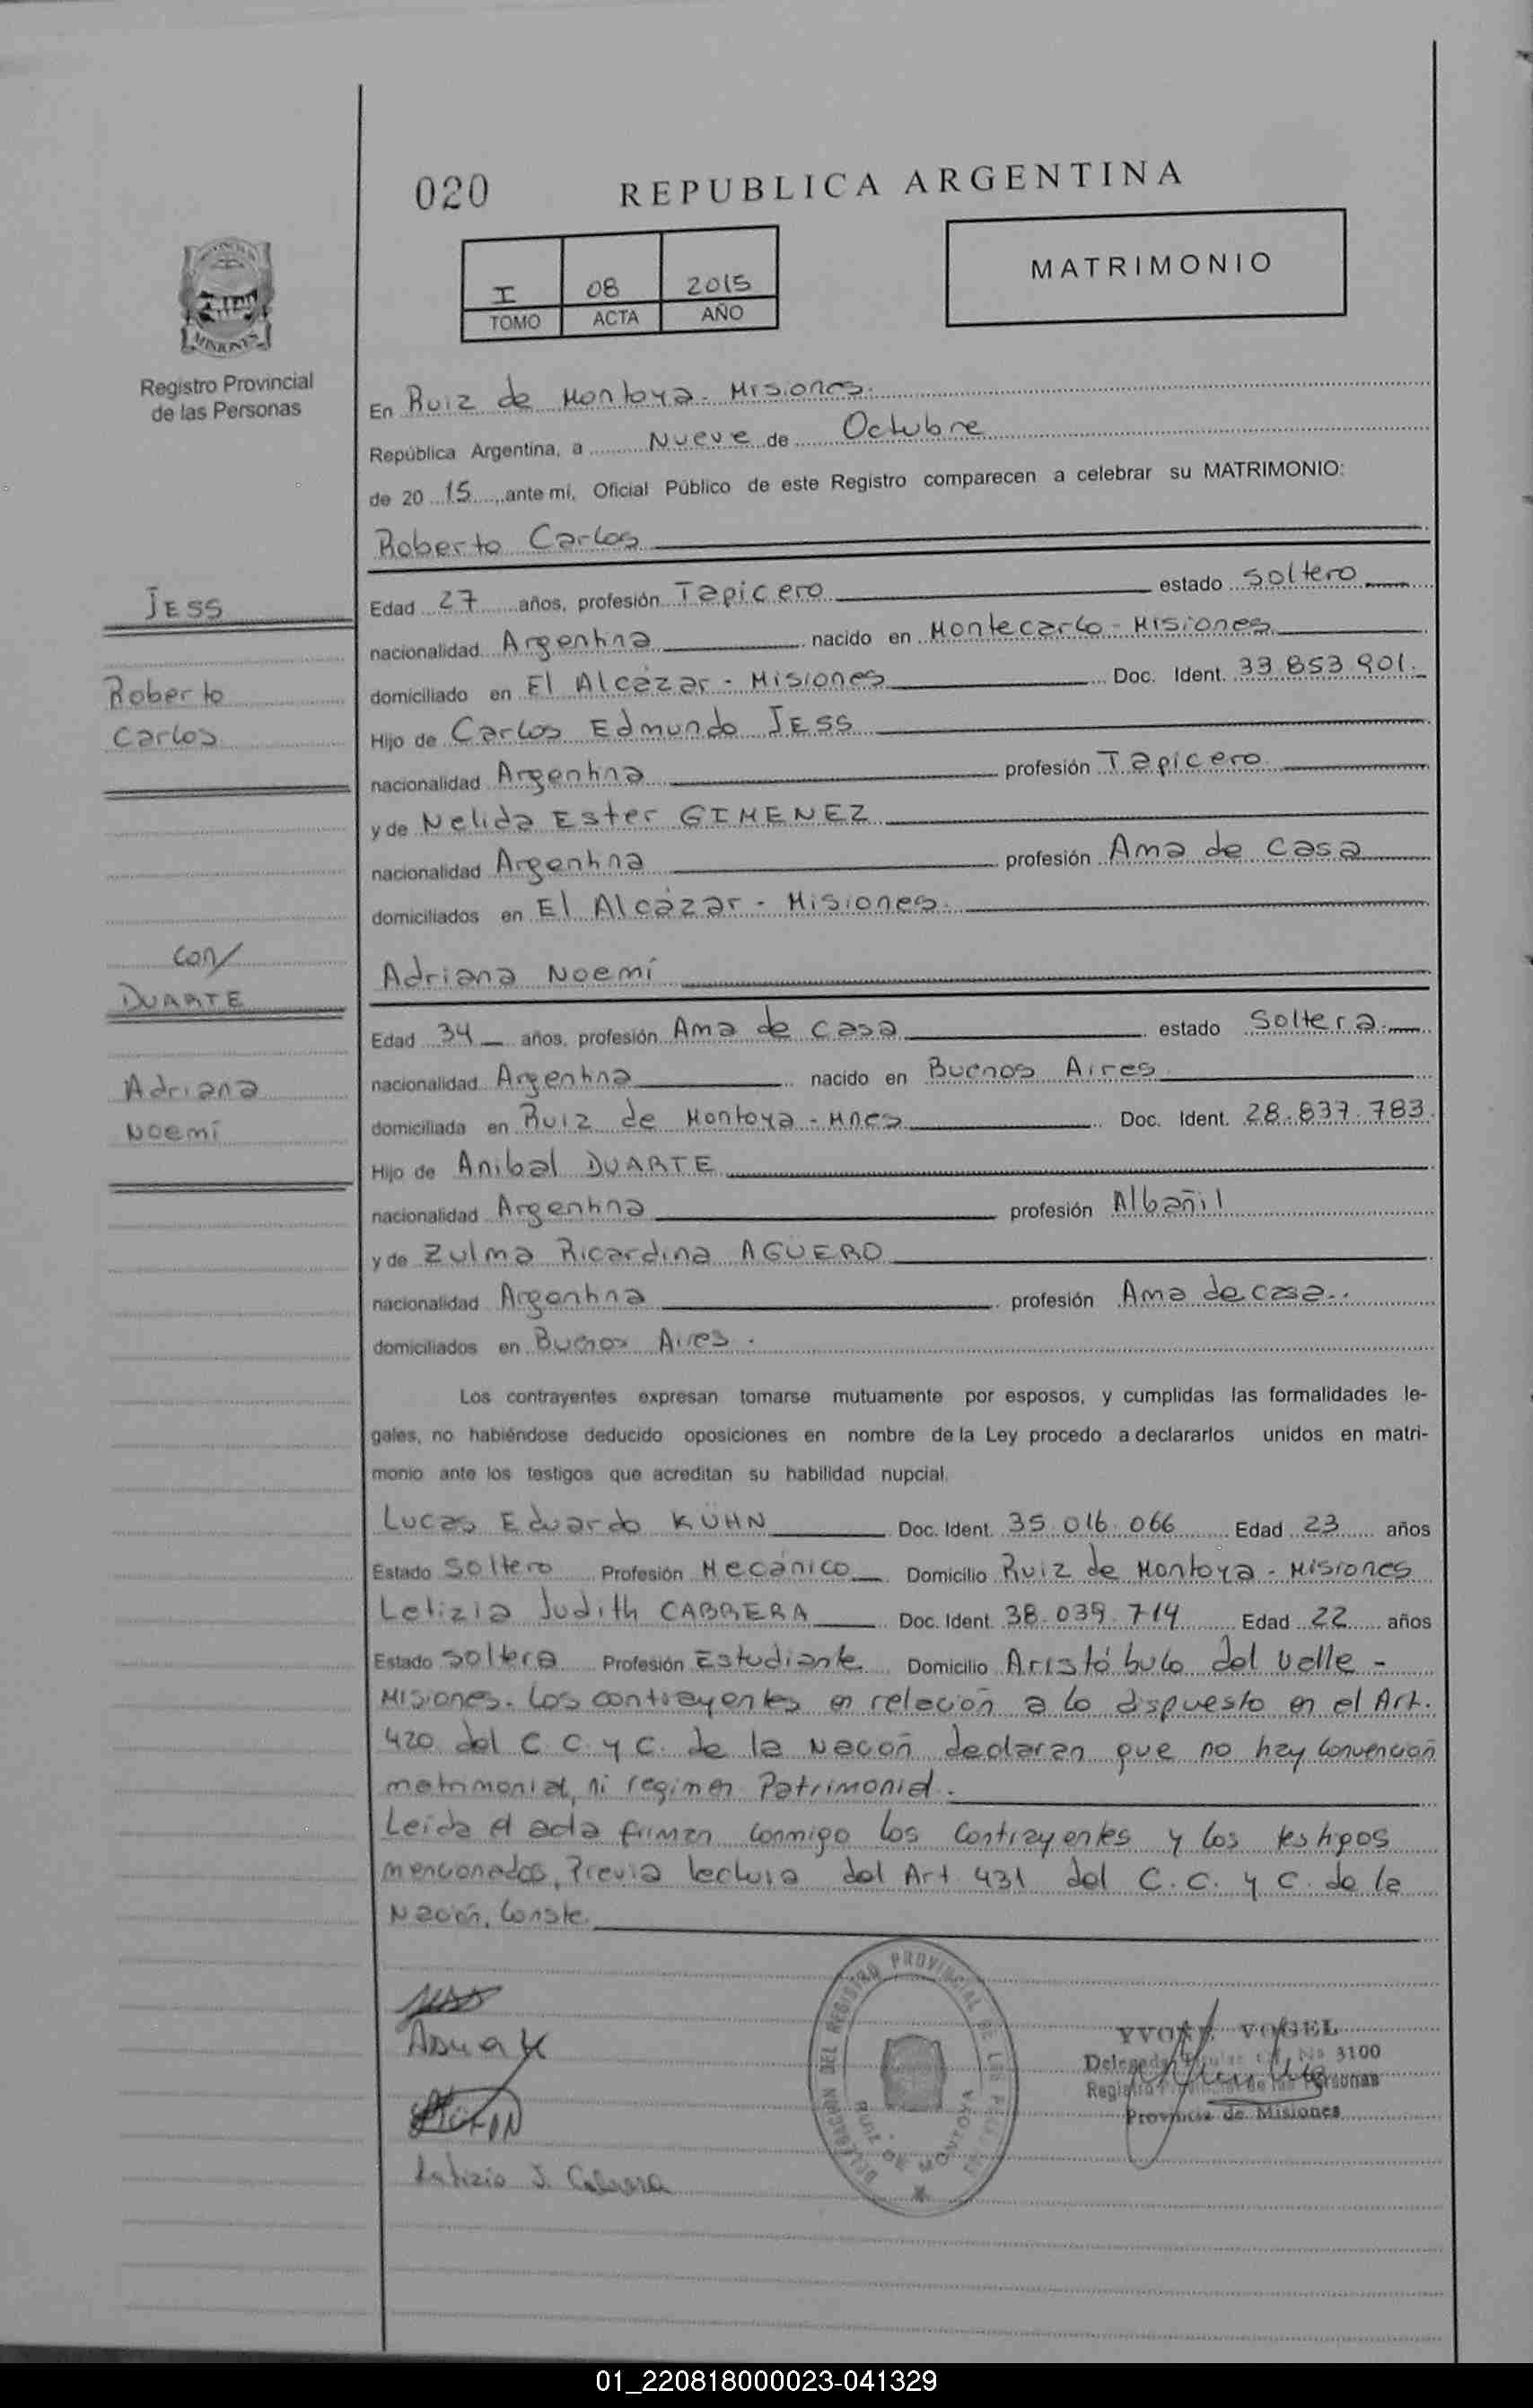 020
REPUBLICA ARGENTINA
I 08 2015
TOMO ACTA AÑO
MATRIMONIO
MISIONES
Registro Provincial
de las Personas
En Ruiz de Montoya - Misiones.
República Argentina, a Nueve de Octubre
de 2015, ante mí, Oficial Público de este Registro comparecen a celebrar su MATRIMONIO:
Roberto Carlos
JESS
Roberto
Carlos
Edad 27 años, profesión Tapicero estado Soltero
nacionalidad Argentina nacido en Montecarlo - Misiones
domiciliado en El Alcázar - Misiones Doc. Ident. 33.853.901.
Hijo de Carlos Edmundo JESS
nacionalidad Argentina profesión Tapicero
y de Nelida Ester GIMENEZ
nacionalidad Argentina profesión Ama de Casa
domiciliados en El Alcázar - Misiones.
con/
DUARTE
Adriana
Noemí
Adriana Noemí
Edad 34 años, profesión Ama de Casa estado Soltera
nacionalidad Argentina nacido en Buenos Aires
domiciliada en Ruiz de Montoya - Mnes Doc. Ident. 28.837.783.
Hijo de Anibal DUARTE
nacionalidad Argentina profesión Albañil
y de Zulma Ricardina AGÜERO
nacionalidad Argentina profesión Ama de casa.
domiciliados en Buenos Aires.
Los contrayentes expresan tomarse mutuamente por esposos, y cumplidas las formalidades le-
gales, no habiéndose deducido oposiciones en nombre de la Ley procedo a declararlos unidos en matri-
monio ante los testigos que acreditan su habilidad nupcial.
Lucas Eduardo KÜHN Doc. Ident. 35.016.066 Edad 23 años
Estado Soltero Profesión Mecánico Domicilio Ruiz de Montoya - Misiones
Letizia Judith CABRERA Doc. Ident. 38.039.714 Edad 22 años
Estado Soltera Profesión Estudiante Domicilio Aristóbulo del Valle -
Misiones. Los contrayentes en relación a lo dispuesto en el Art.
420 del C.C. y C. de la Nación declaran que no hay Convención
matrimonial, ni regimen Patrimonial.
Leida el acta firman conmigo los Contrayentes y los testigos
mencionados, Previa lectura del Art 431 del C.C. y C. de la
Nación, Conste.
Letizia J. Cabrera
DELEGACION DEL REGISTRO PROVINCIAL DE LAS PERSONAS
RUIZ DE MONTOYA
YVONE VOGEL
Delegada Titular Nº 3100
Registro Provincial de las Personas
Provincia de Misiones
01_220818000023-041329